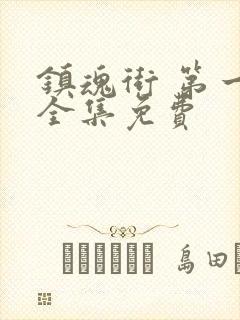 鎮魂街 第一
全集免費
島田